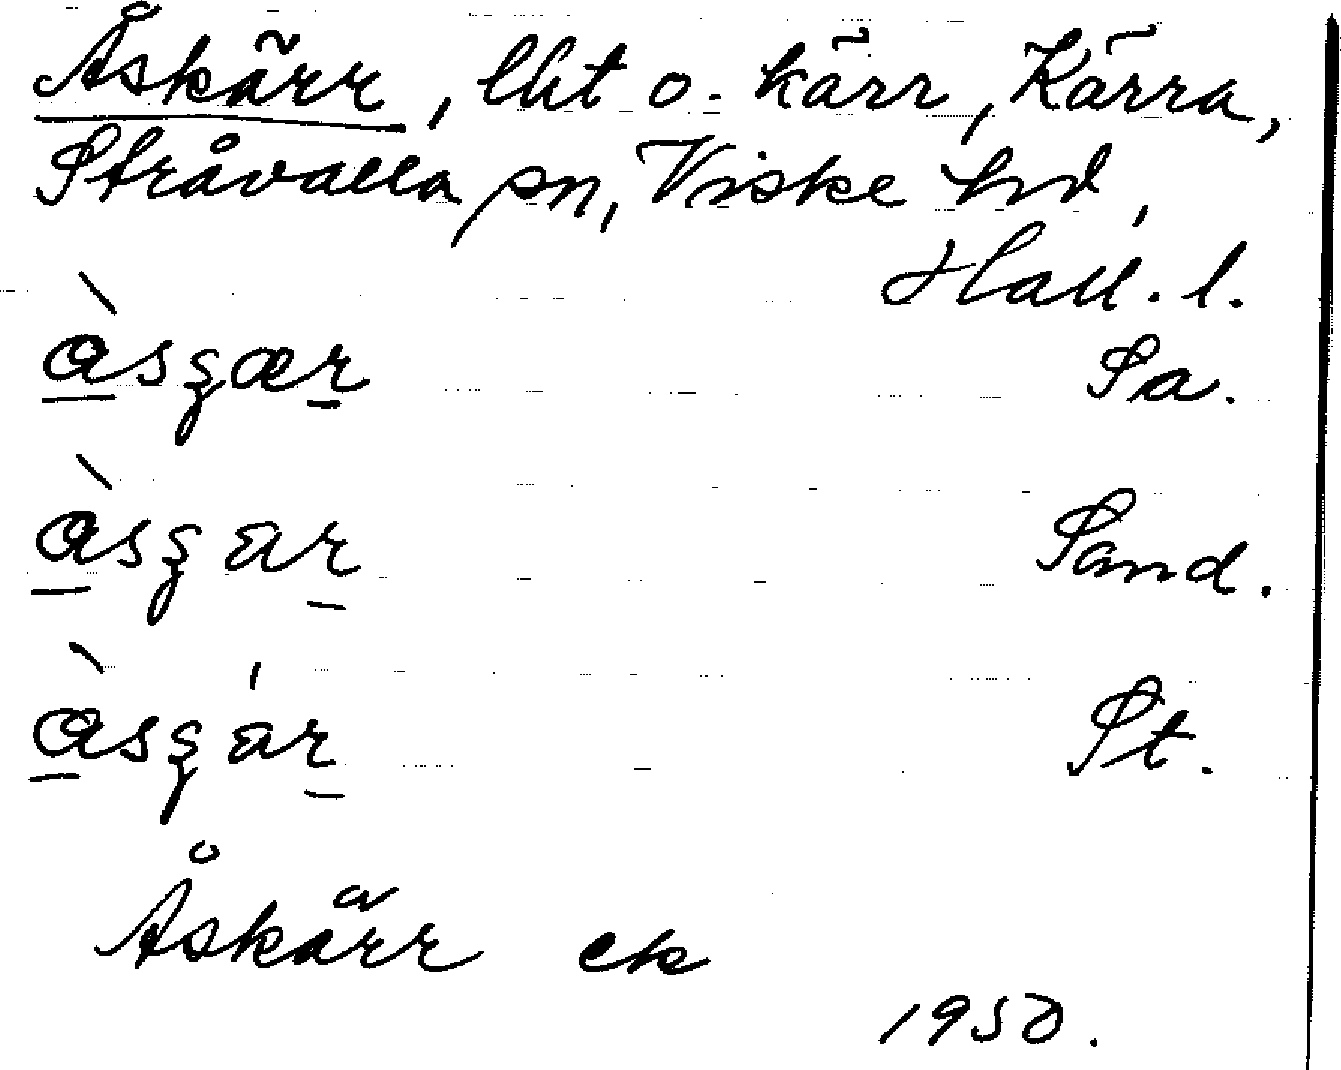 Åskärr, lht o. kärr, Kärra,
Stråvalla sn, Viske hd,
Hall. l.
àsʒær Sa.
àsʒar Sand.
àsʒár St.
Åskärr ek
1950.